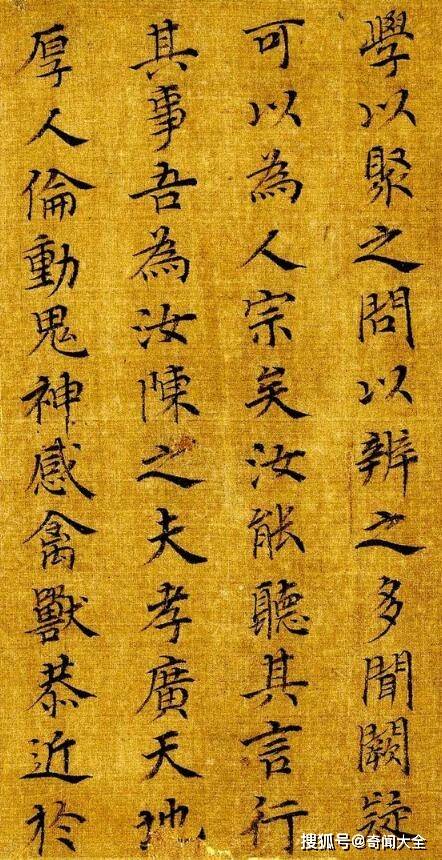 學以聚之問以辨之多聞闕疑
可以為人宗矣汝能聽其言行
其事吾為汝陳之夫孝廣天地
厚人倫動鬼神感禽獸恭近於
搜狐号@奇闻大全